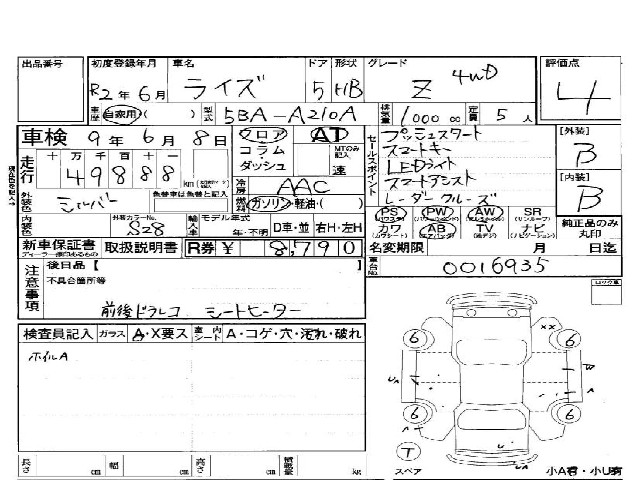 出品番号 初度登録年月 車名 ドア 形状 グレード 評価点
R2年6月 ライズ 5 HB Z 4WD 4
車歴 自家用・( ) 型式 5BA-A210A 排気量 1000 cc 定員 5人
車検 9年6月8日 フロア AT セールスポイント プッシュスタート [外装]
走行 十万千百十一 コラム・ダッシュ MTのみ記入 速 スマートキー B
49888 km LEDライト
冷房 AAC スマートアシスト [内装]
外装色 シルバー 色替車は元色を記入 燃料 ガソリン・軽油・( ) レーダークルーズ B
内装色 外装カラーNo. S28 輸入車 モデル年式 年・不明 D車・並 右H・左H PS PW AW SR
カワ AB TV ナビ 純正品のみ丸印
新車保証書 取扱説明書 R券 ¥ 8,790 名変期限 月 日迄
ディーラー捺印あるもの
注意事項 後日品【 】 車台No. 0016935
不具合箇所等 ロック車
前後ドラレコ シートヒーター
検査員記入 ガラス A・X要ス 車内シート A・コゲ・穴・汚れ・破れ
ホイルA
6 XX 6
W
UA A
6 6
A
T UA U
長さ cm 幅 cm 高さ cm 積載量 kg スペア 小A有・小U有